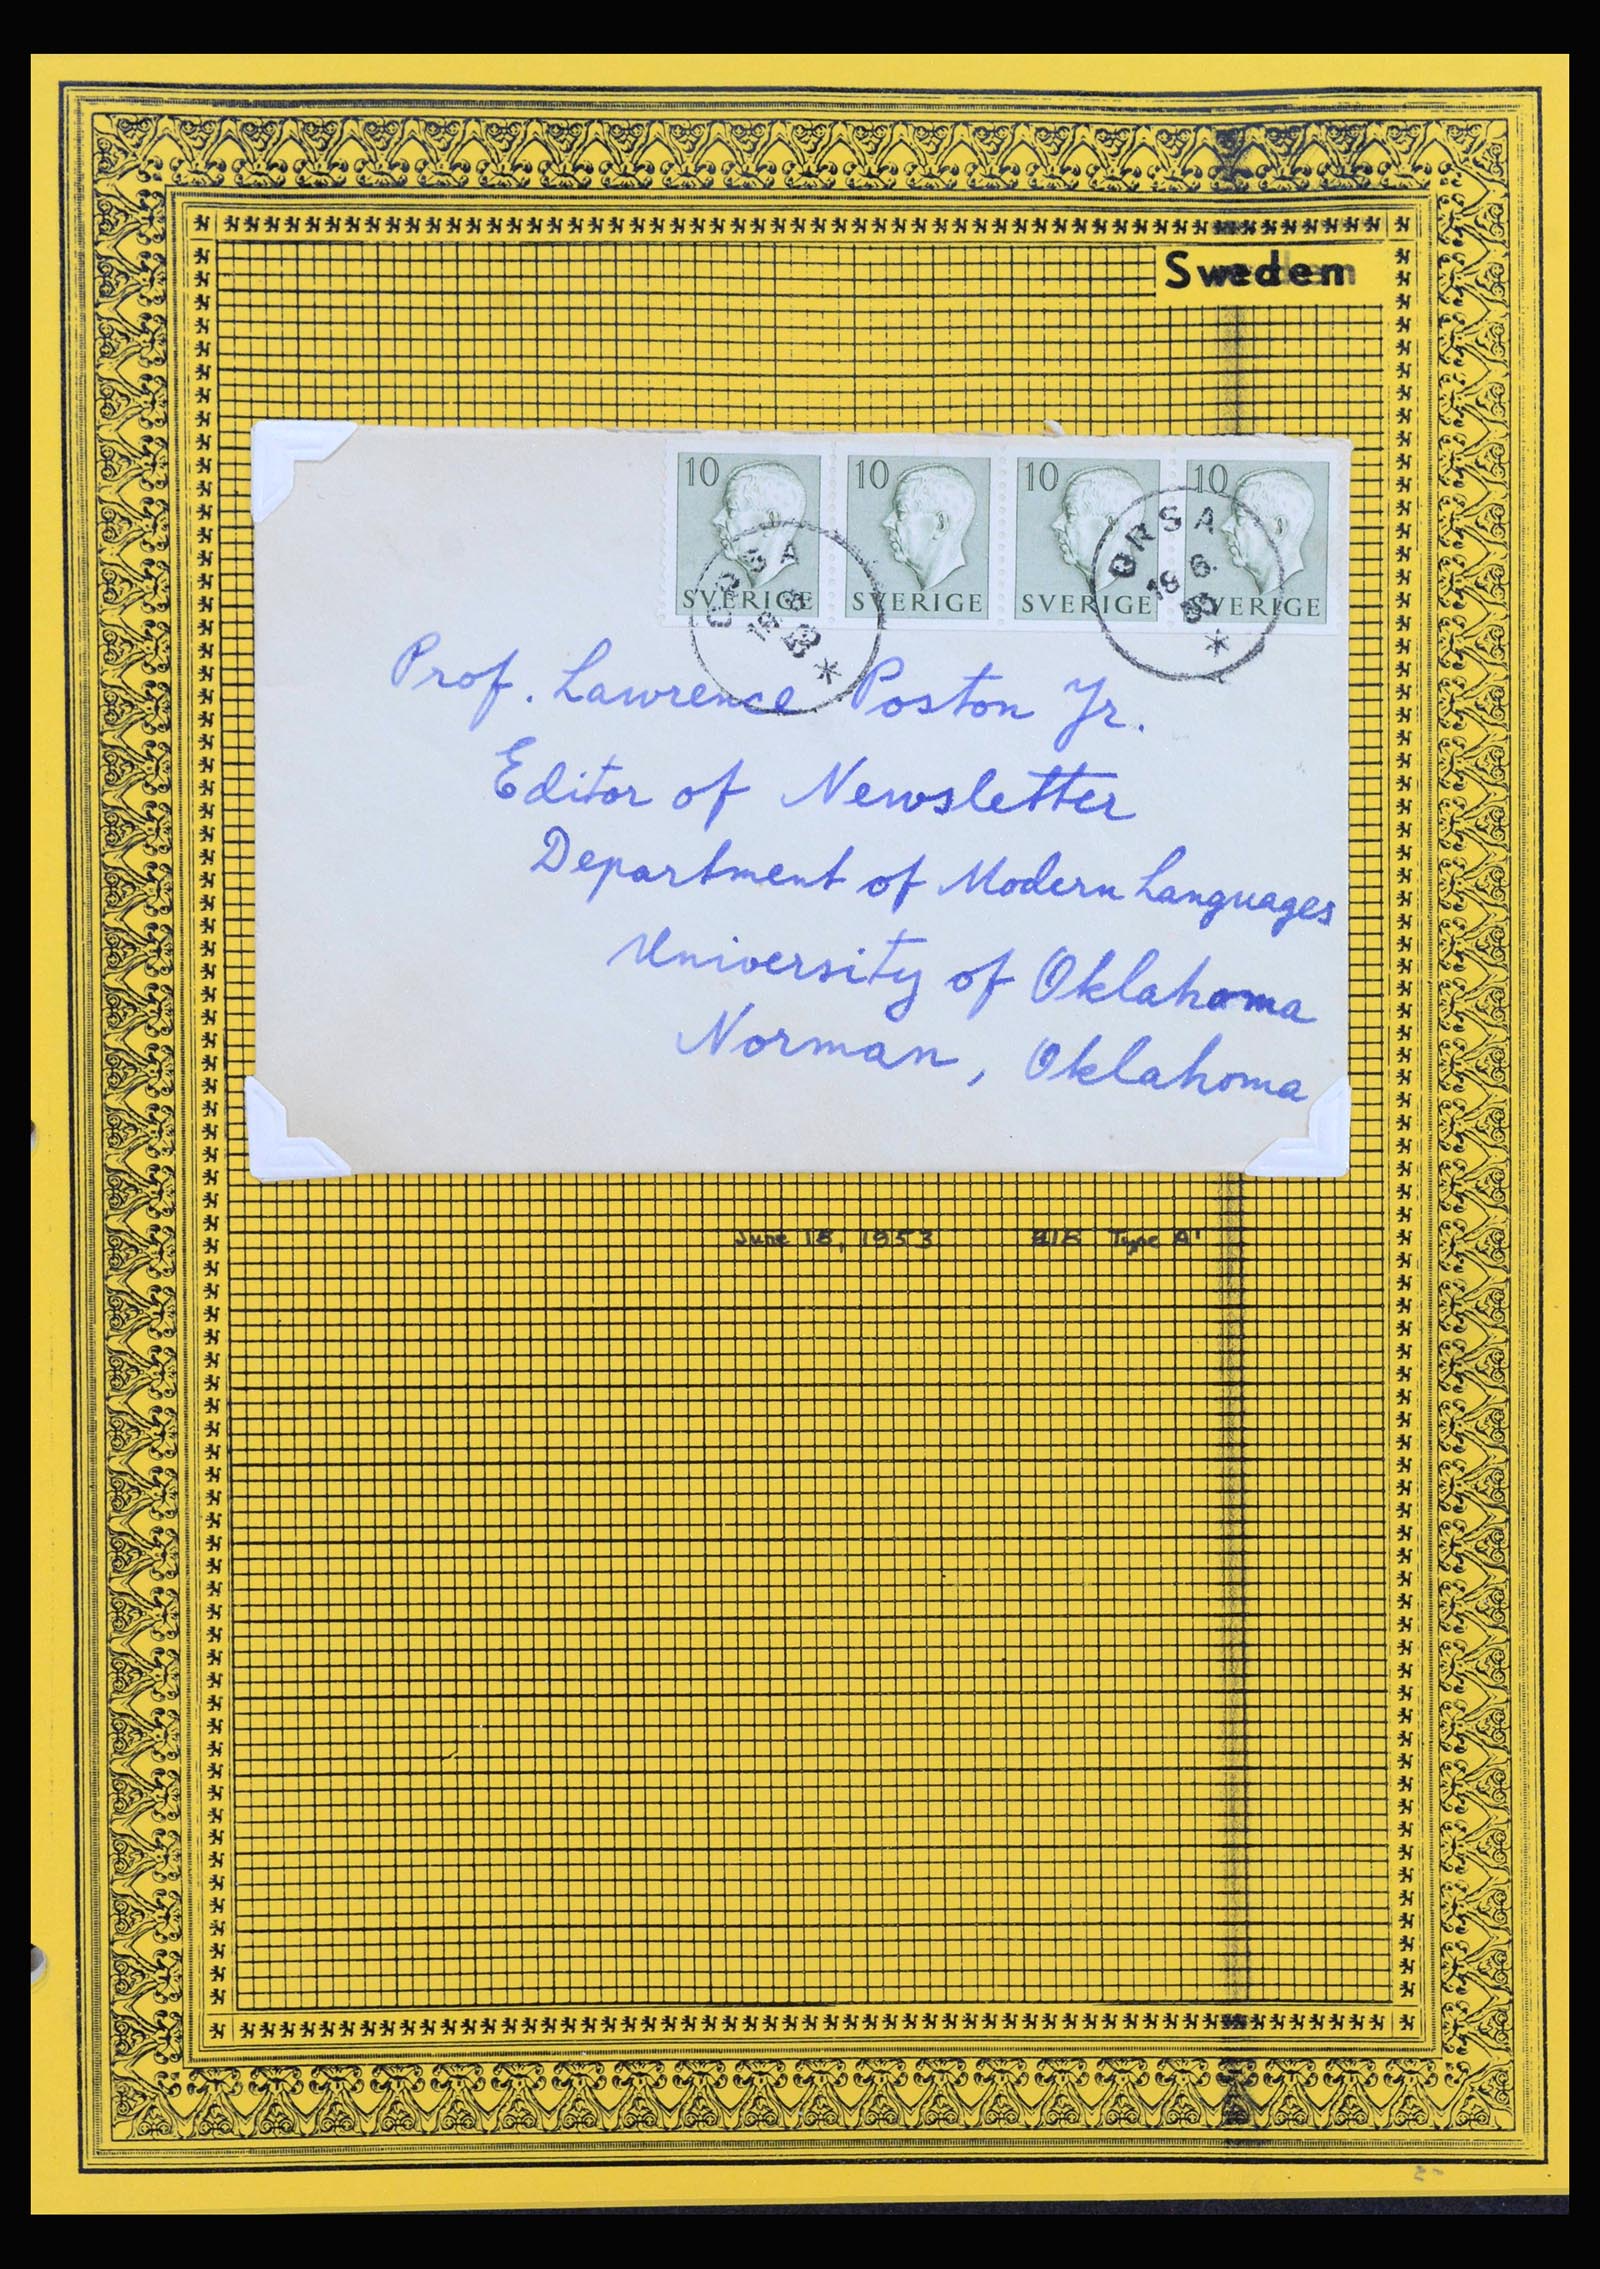 Sweden
10 10 10 10
SVERIGE SVERIGE SVERIGE SVERIGE
ORSA
18 6.
ORSA
Prof. Lawrence Poston Jr.
Editor of Newsletter
Department of Modern Languages
University of Oklahoma
Norman, Oklahoma
June 18, 1953 Type A'